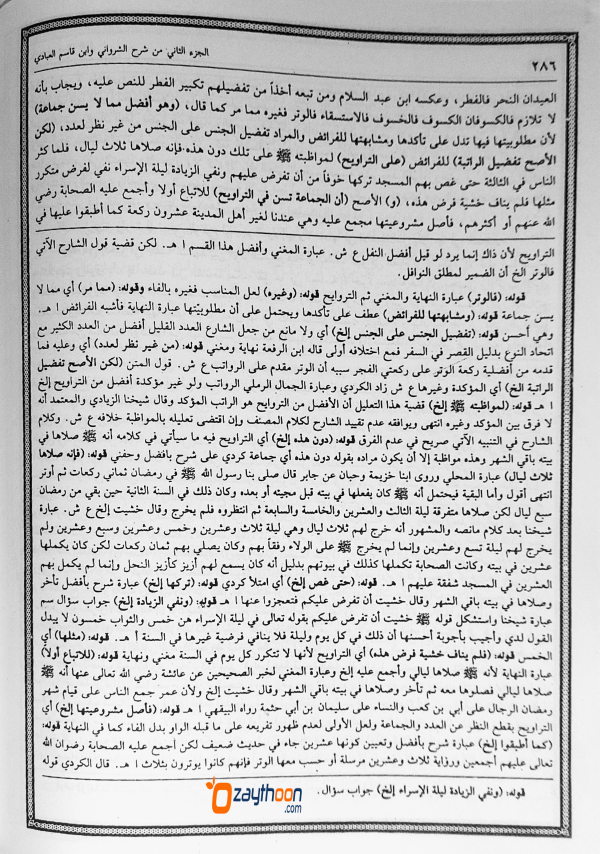 ٢٨٦
الجزء الثاني من شرح الشرواني وابن قاسم العبادي
العيدان النحر فالفطر، وعكسه ابن عبد السلام ومن تبعه أخذاً من تفضيلهم تكبير الفطر للنص عليه، ويجاب بأنه
لا تلازم فالكسوفان الكسوف فالخسوف فالاستسقاء فالوتر فغيره مما مر كما قال، (وهو أفضل مما لا يسن جماعة)
لأن مطلوبيتها فيها تدل على تأكدها ومشابهتها للفرائض والمراد تفضيل الجنس على الجنس من غير نظر لعدد، (لكن
الأصح تفضيل الراتبة) للفرائض (على التراويح) لمواظبته ﷺ على تلك دون هذه فإنه صلاها ثلاث ليال، فلما كثر
الناس في الثالثة حتى غص بهم المسجد تركها خوفاً من أن تفرض عليهم ونفي الزيادة ليلة الإسراء نفي لفرض متكرر
مثلها فلم يناف خشية فرض هذه، (و) الأصح (أن الجماعة تسن في التراويح) للاتباع أولا وأجمع عليه الصحابة رضي
الله عنهم أو أكثرهم، فأصل مشروعيتها مجمع عليه وهي عندنا لغير أهل المدينة عشرون ركعة كما أطبقوا عليها في
التراويح لأن ذاك إنما يرد لو قيل أفضل النفل ع ش. عبارة المغني وأفضل هذا القسم ا هـ. لكن قضية قول الشارح الآتي
فالوتر الخ أن الضمير لمطلق النوافل.
قوله: (فالوتر) عبارة النهاية والمغني ثم التراويح قوله: (وغيره) لعل المناسب فغيره بالفاء وقوله: (مما مر) أي مما لا
يسن جماعة قوله: (ومشابهتها للفرائض) عطف على تأكدها ويحتمل على أن مطلوبيتها عبارة النهاية فأشبه الفرائض ا هـ.
وهي أحسن قوله: (تفضيل الجنس على الجنس إلخ) أي ولا مانع من جعل الشارع العدد القليل أفضل من العدد الكثير مع
اتحاد النوع بدليل القصر في السفر فمع اختلافه أولى قاله ابن الرفعة نهاية ومغني قوله: (من غير نظر لعدد) أي وعليه فما
قدمه من أفضلية ركعة الوتر على ركعتي الفجر سببه أن الوتر مقدم على الرواتب ع ش. قول المتن (لكن الأصح تفضيل
الراتبة الخ) أي المؤكدة وغيرها ع ش زاد الكردي وعبارة الجمال الرملي الرواتب ولو غير مؤكدة أفضل من التراويح إلخ
ا هـ قوله: (لمواظبته ﷺ إلخ) قضية هذا التعليل أن الأفضل من التراويح هو الراتب المؤكد وقال شيخنا الزيادي والمعتمد أنه
لا فرق بين المؤكد وغيره انتهى ويوافقه عدم تقييد الشارح لكلام المصنف وإن اقتضى تعليله بالمواظبة خلافه ع ش. وكلام
الشارح في التنبيه الآتي صريح في عدم الفرق قوله: (دون هذه إلخ) أي التراويح فيه ما سيأتي في كلامه أنه ﷺ صلاها في
بيته باقي الشهر وهذه مواظبة إلا أن يكون مراده بقوله دون هذه أي جماعة كردي على شرح بافضل وحفني قوله: (فإنه صلاها
ثلاث ليال) عبارة المحلي وروى ابنا خزيمة وحبان عن جابر قال صلى بنا رسول الله ﷺ في رمضان ثماني ركعات ثم أوتر
انتهى أقول وأما البقية فيحتمل أنه ﷺ كان يفعلها في بيته قبل مجيئه أو بعده وكان ذلك في السنة الثانية حين بقي من رمضان
سبع ليال لكن صلاها متفرقة ليلة الثالث والعشرين والخامسة والسابعة ثم انتظروه فلم يخرج وقال خشيت إلخ ع ش. عبارة
شيخنا بعد كلام مانصه والمشهور أنه خرج لهم ثلاث ليال وهي ليلة ثلاث وعشرين وخمس وعشرين وسبع وعشرين ولم
يخرج لهم ليلة تسع وعشرين وإنما لم يخرج ﷺ على الولاء رفقاً بهم وكان يصلي بهم ثمان ركعات لكن كان يكملها
عشرين في بيته وكانت الصحابة تكملها كذلك في بيوتهم بدليل أنه كان يسمع لهم أزيز كأزيز النحل وإنما لم يكمل بهم
العشرين في المسجد شفقة عليهم ا هـ. قوله: (حتى غص إلخ) أي امتلأ كردي قوله: (تركها إلخ) عبارة شرح بأفضل تأخر
وصلاها في بيته باقي الشهر وقال خشيت أن تفرض عليكم فتعجزوا عنها ا هـ قوله: (ونفي الزيادة إلخ) جواب سؤال سم
عبارة شيخنا واستشكل قوله ﷺ خشيت أن تفرض عليكم بقوله تعالى في ليلة الإسراء هن خمس والثواب خمسون لا يبدل
القول لدي وأجيب بأجوبة أحسنها أن ذلك في كل يوم وليلة فلا ينافي فرضية غيرها في السنة أ هـ. قوله: (مثلها) أي
الخمس قوله: (فلم يناف خشية فرض هذه) أي التراويح لأنها لا تتكرر كل يوم في السنة مغني ونهاية قوله: (للاتباع أولاً)
عبارة النهاية لأنه ﷺ صلاها ليالي وأجمع عليه إلخ وعبارة المغني لخبر الصحيحين عن عائشة رضي الله تعالى عنها أنه ﷺ
صلاها ليالي فصلوها معه ثم تأخر وصلاها في بيته باقي الشهر وقال خشيت إلخ ولأن عمر جمع الناس على قيام شهر
رمضان الرجال على أبي بن كعب والنساء على سليمان بن أبي حثمة رواه البيهقي ا هـ قوله: (فأصل مشروعيتها إلخ) أي
التراويح بقطع النظر عن العدد والجماعة ولعل الأولى لعدم ظهور تفريعه على ما قبله الواو بدل الفاء كما في النهاية قوله:
(كما أطبقوا إلخ) عبارة شرح بأفضل وتعيين كونها عشرين جاء في حديث ضعيف لكن أجمع عليه الصحابة رضوان الله
تعالى عليهم أجمعين ورزاية ثلاث وعشرين مرسلة أو حسب معها الوتر فإنهم كانوا يوترون بثلاث ا هـ. قال الكردي قوله
قوله: (ونفي الزيادة ليلة الإسراء إلخ) جواب سؤال.
zaythoon
.com